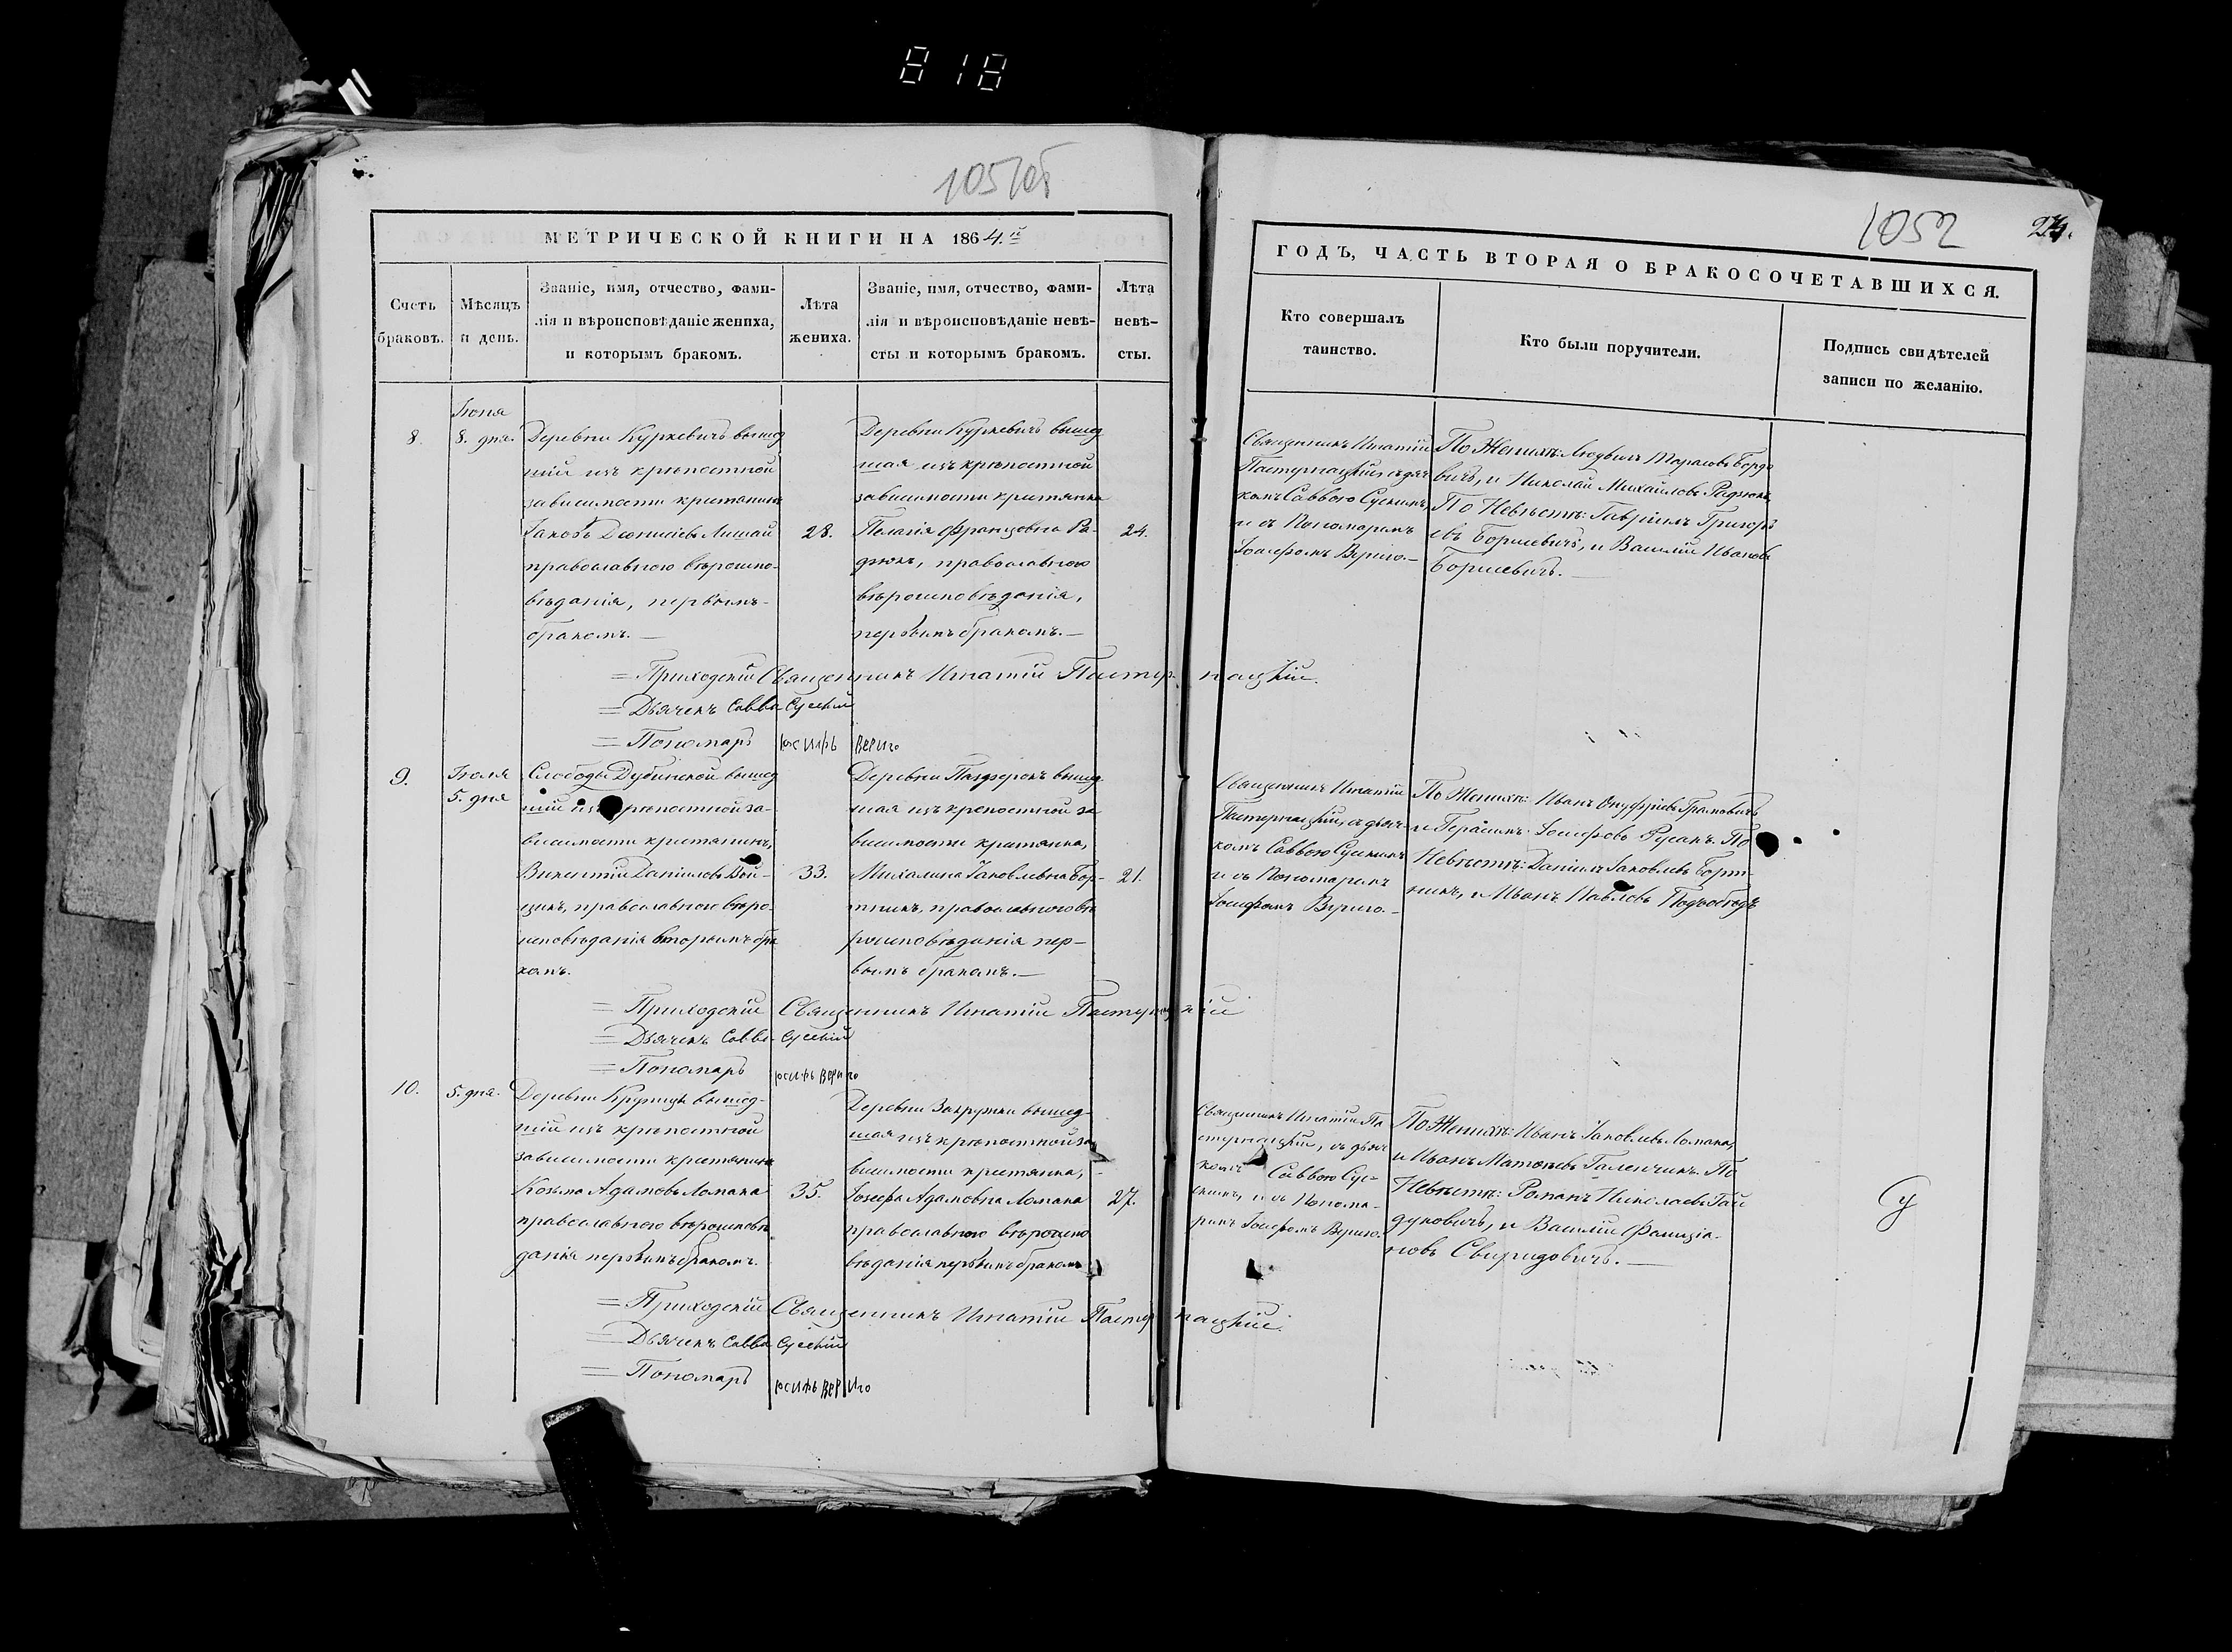 818
105 об
МЕТРИЧЕСКОЙ КНИГИ НА 1864.й
Счетъ
браковъ.
Мѣсяцъ
и день.
Званіе, имя, отчество, фами-
лія и вѣроисповѣданіе жениха,
и которымъ бракомъ.
Лѣта
жениха.
Званіе, имя, отчество, фами-
лія и вѣроисповѣданіе невѣ-
сты и которымъ бракомъ.
Лѣта
невѣ-
сты.
8.
Іюня
8. дня.
Деревни Куркевичъ вышед
шій изъ крѣпостной
зависимости крестьянинъ
Іаковъ Діонисіевъ Лишай
православнаго вѣроиспо-
вѣданія, первымъ-
бракомъ.—
28.
Деревни Куркевичъ вышед
шая изъ крѣпостной
зависимости крестьянка
Пелагія Францовна Ра-
дюкъ, православнаго
вѣроисповѣданія,
первымъ бракомъ.—
24.
=Приходскій Священникъ Игнатій Пастернацкій.
=Дьячекъ Савва Сускій
=Пономарь Іосифъ Вериго
9.
Іюля
5. дня
Слободы Дубинской вышед
шій изъ крѣпостной за-
висимости крестьянинъ,
Викентій Даніиловъ Вой-
православнаго вѣро-
исповѣданія вторымъ бра
комъ.
33.
Деревни вышед
шая изъ крепостной за
висимости крестьянка,
Михалина Іаковлевна Бор-
тникъ, православнаго вѣ
роисповѣданія пер-
вымъ бракомъ.—
21.
=Приходскій Священникъ Игнатій Пастернацкій
=Дьячекъ Савва Сускій
=Пономарь Іосифъ Вериго
10.
5. дня.
Деревни Крупицъ вышед-
шій изъ крѣпостной
зависимости крестьянинъ
Козьма Адамовъ Ломака
православнаго вѣроисповѣ
данія первымъ бракомъ.
35.
Деревни Закружки вышед-
шая изъ крѣпостной за
висимости крестьянка,
Іозефа Адамовна Ломака
православнаго вѣроиспо
вѣданія первымъ бракомъ
27.
=Приходскій Священникъ Игнатій Пастернацкій.
=Дьячекъ Савва Сускій
=Пономарь Іосифъ Вериго
1052
ГОДЪ, ЧАСТЬ ВТОРАЯ О БРАКОСОЧЕТАВШИХСЯ.
Кто совершалъ
таинство.
Кто были поручители.
Подпись свидѣтелей
записи по желанію.
Священникъ Игнатій
Пастернацкій, съ дьяч
комъ Саввою Сускимъ
и съ Пономаремъ
Іосифомъ Вериго.—
По Женихѣ: Людвигъ Тарасовъ Бордо
вичъ, и Николай Михайловъ Радюкъ,
По Невѣстѣ: Гавріилъ Григорь
евъ Борисевичъ, и Василій Ивановъ
Борисевичъ.—
Священникъ Игнатій
Пастернацкій, съ дьяч-
комъ Саввою Сускимъ
и съ Пономаремъ
Іосифомъ Вериго.—
По Женихѣ: Иванъ Онуфріевъ Грамовичъ
и Герасимъ Іосифовъ Русакъ. По
Невѣстѣ: Даніилъ Іаковлевъ Борт-
никъ, и Иванъ Павловъ Подобѣдъ
Священникъ Игнатій Па
стернацкій, съ дьяч
комъ Саввою Сус-
кимъ, и съ Понома-
ремъ Іосифомъ Вериго.
По Женихѣ: Иванъ Іаковлевъ Ломака,
и Иванъ Матвѣевъ Галенчикъ. По
Невѣстѣ: Романъ Николаевъ Гай
дуковичъ, и Василій Фанизіа-
новъ Свиридовичъ.—